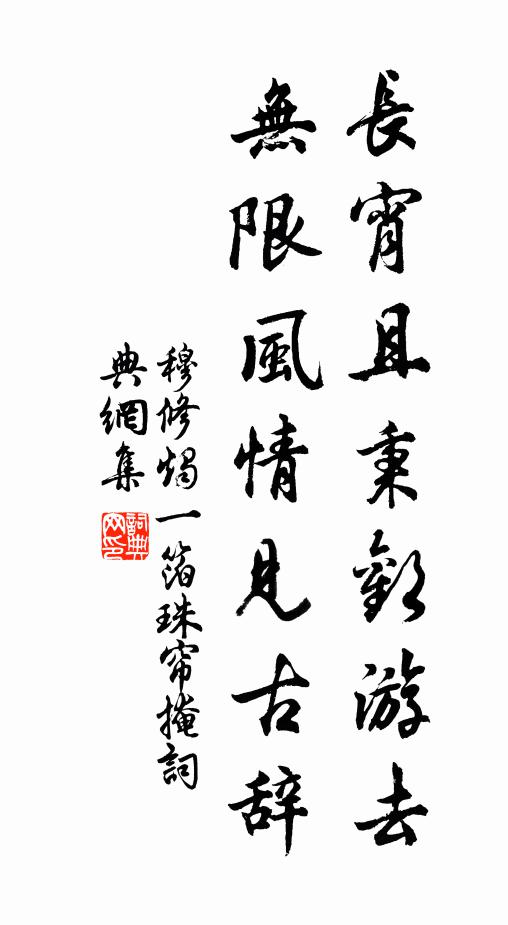 長宵且秉歡游去
無限風情見古辞
穆修燭一箔珠帘掩詞
典網集
詞典網印